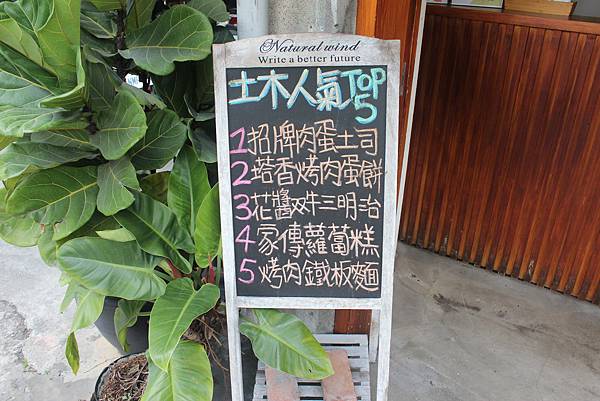 Natural wind
Write a better future
土木人氣TOP5
1招牌肉蛋土司
2塔香烤肉蛋餅
3花醬双牛三明治
4家傳蘿蔔糕
5烤肉鐵板麵